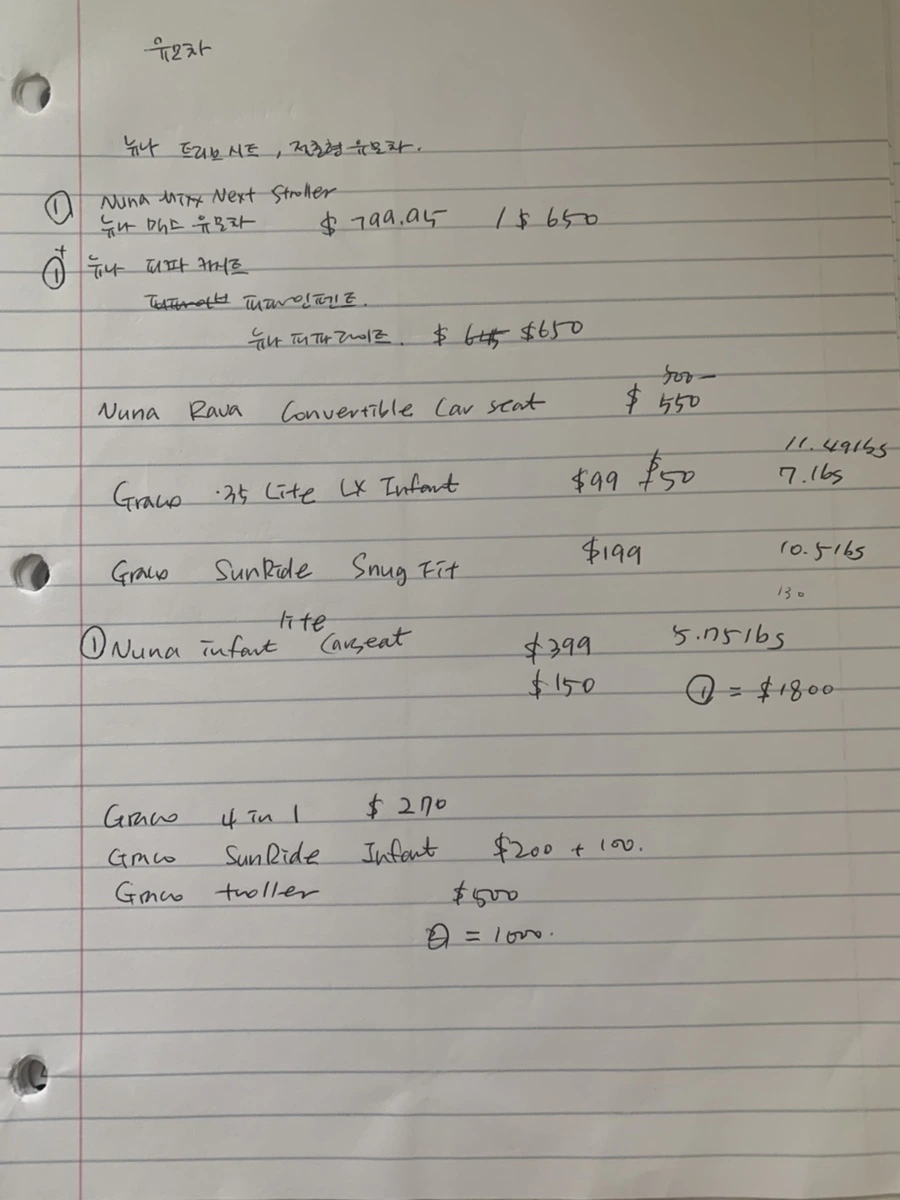 유모차
뉴나 트리보시트, 절충형 유모차.
① Nuna Mixx Next Stroller
뉴나 믹스 유모차 $799.95 / $650
+
① 뉴나 피파 카시트
피파인펜트.
뉴나 피파라이트. $ 645 $650
500
Nuna Rava Convertible Car seat $ 550
11.49lbs
Graco .35 Lite LX Infant $99 $50 7.1bs
Graco SunRide Snug Fit $199 10.5lbs
130
lite
① Nuna infant Carseat $399 5.75lbs
$150 ① = $1800
Graco 4 in 1 $270
Graco SunRide Infant $200 + 100.
Graco troller $500
② = 1000.